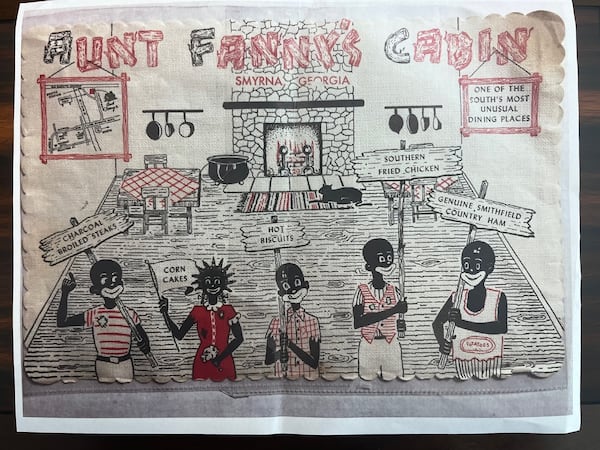 AUNT FANNY'S CABIN
SMYRNA, GEORGIA
ONE OF THE
SOUTH'S MOST
UNUSUAL
DINING PLACES
SOUTHERN
FRIED CHICKEN
GENUINE SMITHFIELD
COUNTRY HAM
CHARCOAL
BROILED STEAKS
CORN
CAKES
HOT
BISCUITS